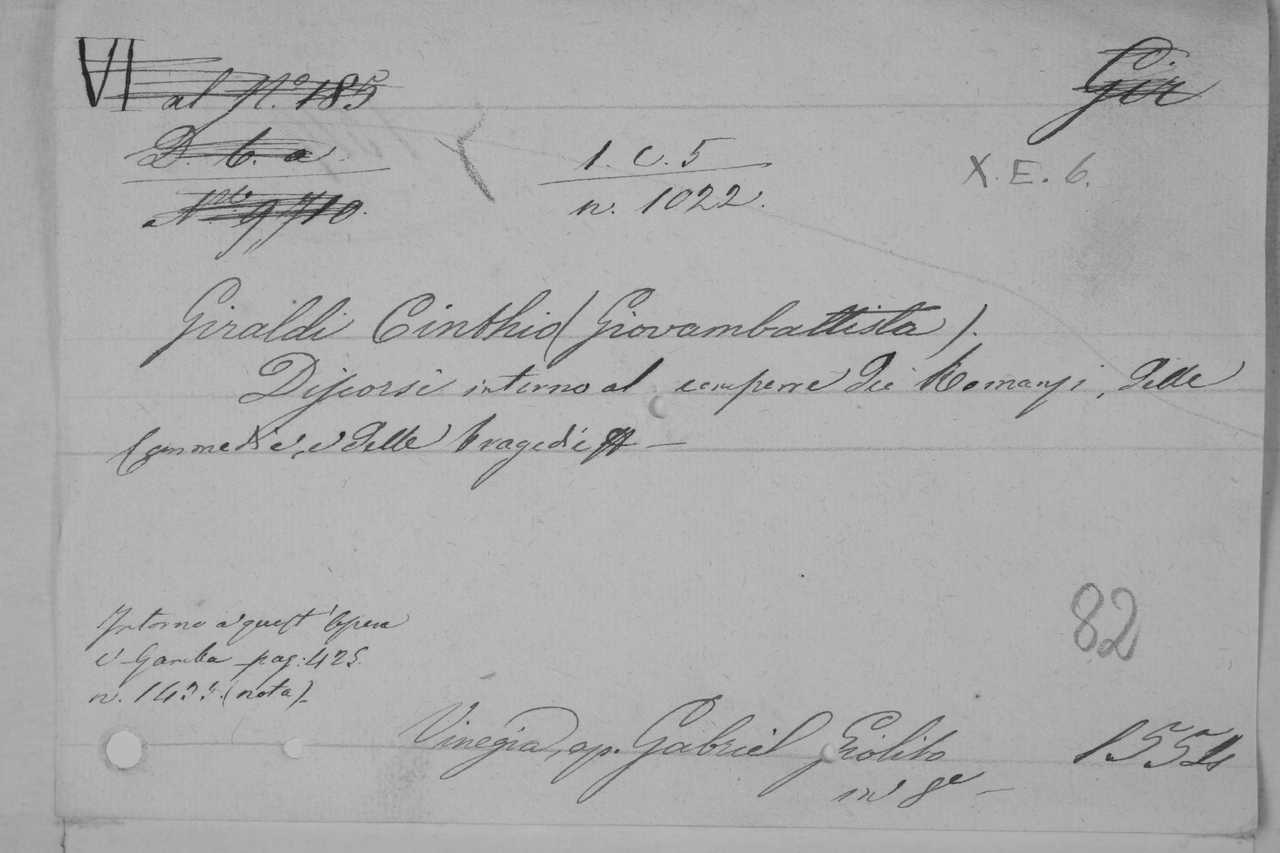 VI al N.º 185
Gir
D. b. a
1. C. 5
X. E. 6.
n. 1022.
Giraldi Cinthio (Giovambattista).
Discorsi intorno al comporre dei Romanzi, delle
Commedie, e delle Tragedie —
Intorno a quest'Opera
v. Gamba pag. 425.
n. (nota)
82
Vinegia, ap. Gabriel Giolito
1554
in 8º —